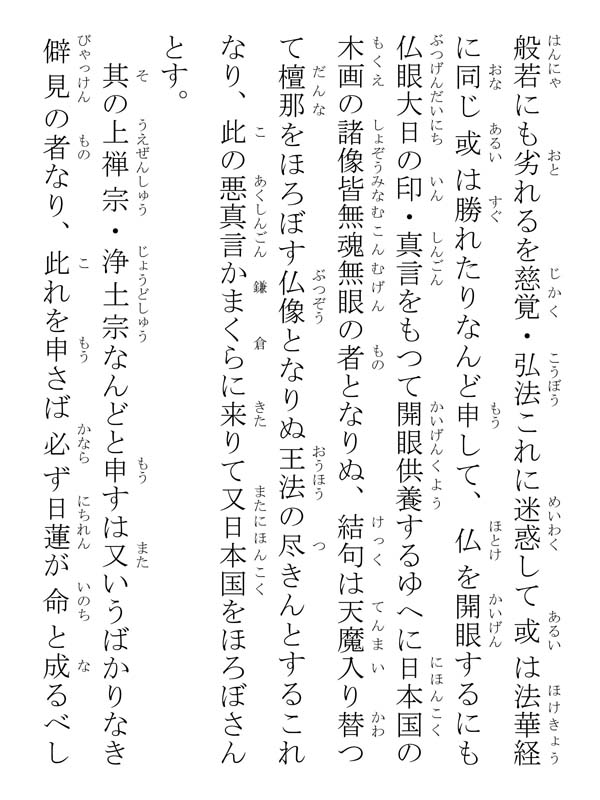 般若にも劣れるを慈覚・弘法これに迷惑して或は法華経
に同じ或は勝れたりなんど申して、仏を開眼するにも
仏眼大日の印・真言をもつて開眼供養するゆへに日本国の
木画の諸像皆無魂無眼の者となりぬ、結句は天魔入り替つ
て檀那をほろぼす仏像となりぬ王法の尽きんとするこれ
なり、此の悪真言かまくらに来りて又日本国をほろぼさん
とす。
其の上禅宗・浄土宗なんどと申すは又いうばかりなき
僻見の者なり、此れを申さば必ず日蓮が命と成るべし